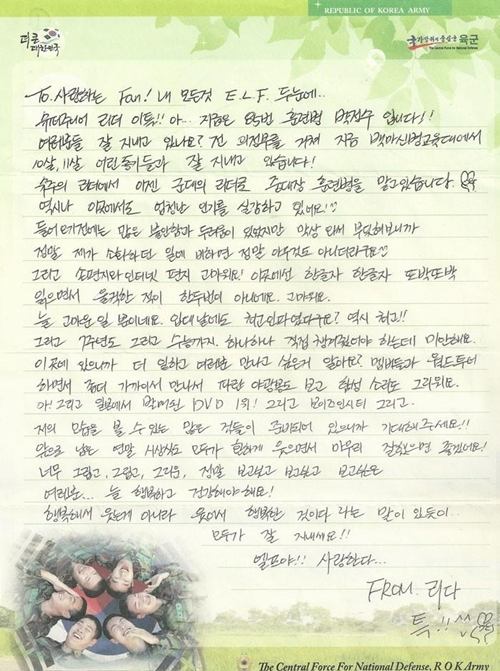 REPUBLIC OF KOREA ARMY
더 큰 대한민국
국가방위의 중심군 육군
The Central Force for National Defense
To. 사랑하는 Fan! 내 모든것 E.L.F. 두눈에...
슈퍼주니어 리더 이특!! 아... 지금은 훈련병 박정수 입니다!!
여러분들 잘 지내고 있나요? 전 의정부를 거쳐 지금 백마신병교육대에서
10살, 11살 어린 동생들과 잘 지내고 있습니다!
슈주의 리더에서 이젠 군대의 리더로 중대장 훈련병을 맡고있습니다
역시나 이곳에서도 엄청난 인기를 실감하고 있네요!!
들어오기전에는 많은 불안함과 두려움이 있었지만 막상 와서 부딪혀보니까
정말 제가 소화하던 일에 비하면 정말 아무것도 아니더라구요
그리고 손편지와 인터넷 편지 고마워요! 이곳에선 한글자 한글자 또박또박
읽으면서 울컥한 적이 한두번이 아니에요. 고마워요.
늘 고마운 일 뿐이네요. 입대날에도 최고인파였다구요? 역시 최고!!
그리고 7주년도 그리고 수능까지. 하나하나 직접 챙겨줬어야 하는데 미안해요.
이곳에 있으니까 더 일하고 여러분 만나고 싶은거 알아요? 멤버들과 월드투어
하면서 좀더 가까이서 만나서 파란 야광봉도 보고 함성 소리도 그리워요.
아! 그리고 일본에서 발매된 DVD 1위! 그리고 보이즈인시티 그리고.
저의 모습을 볼 수 있는 많은 것들이 준비되어 있으니까 기대해주세요!!
앞으로 남은 연말 시상식도 모두가 환하게 웃으면서 마무리 잘했으면 좋겠네요!
너무 그립고, 그립고, 그리운, 정말 보고싶고 보고싶고 보고싶은
여러분... 늘 행복하고 건강해야해요!
행복해서 웃는게 아니라 웃어서 행복한 것이다 라는 말이 있듯이..
모두가 잘 지내세요!!
엘프야!! 사랑한다...
FROM. 리다
특!! ^^
The Central Force For National Defense, R O K Army